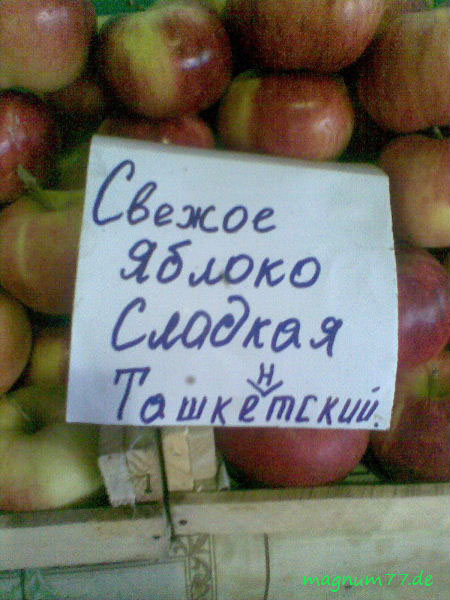 Свежое
Яблоко
Сладкая
Ташкентский.
magnum77.de